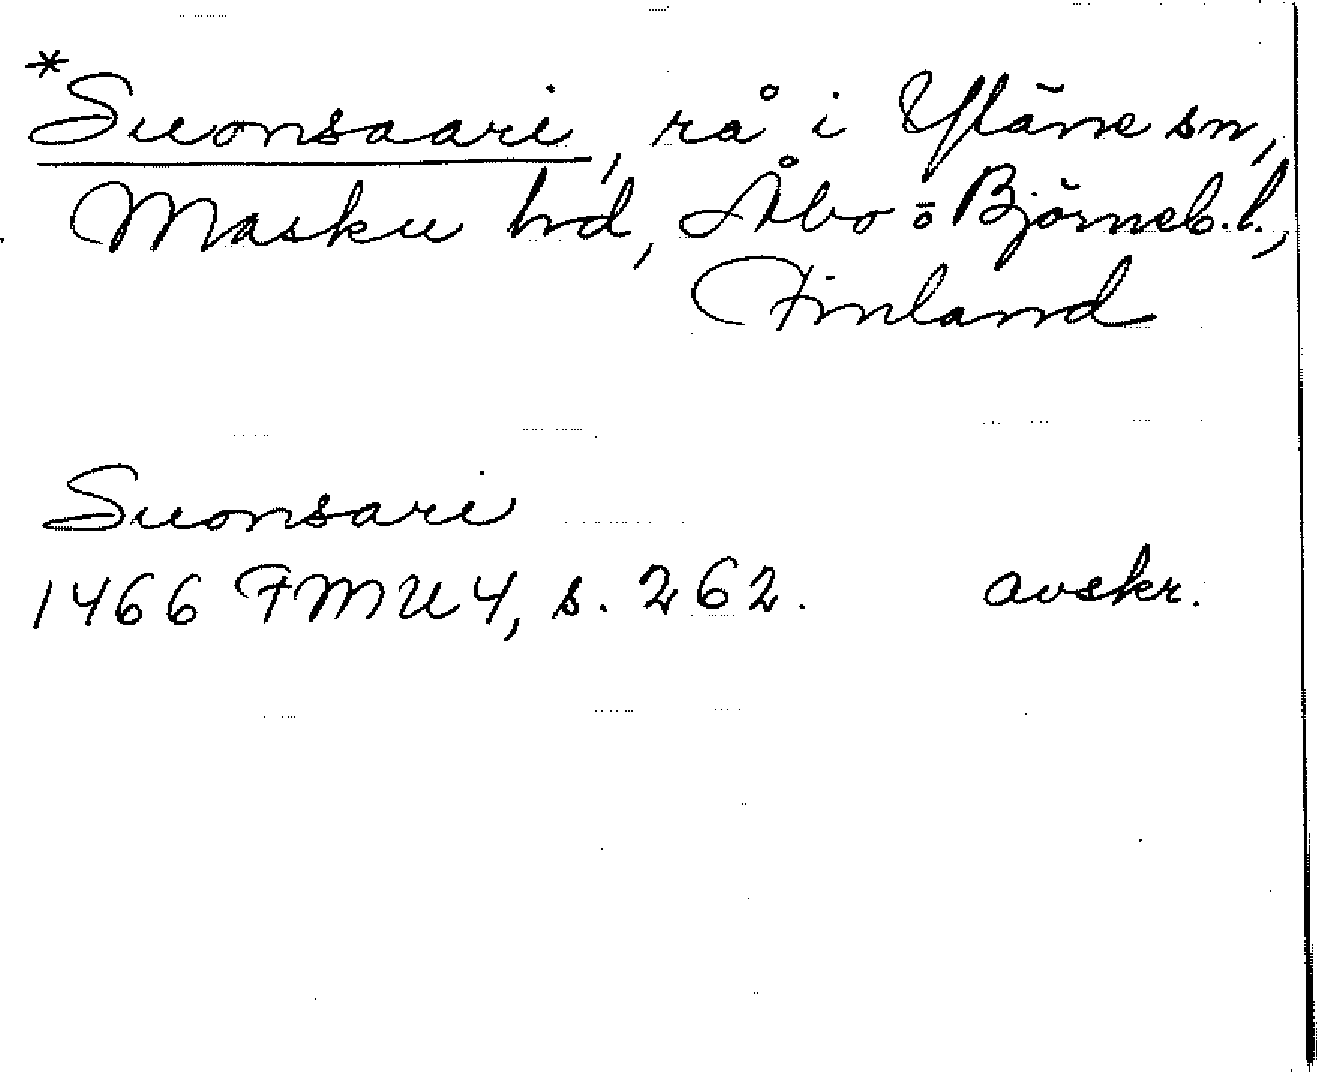 *Suonsaari, rå i Yläne sn,
Masku hd, Åbo o Björneb. l.,
Finland
Suonsari
1466 FMU 4, s. 262. avskr.